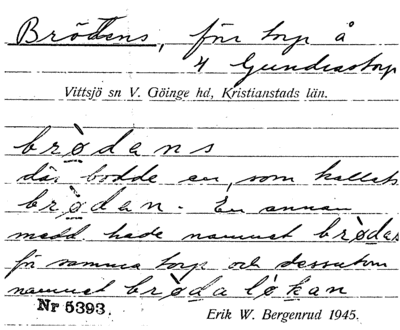 Bröddens, för torp å
4 Gundrastorp
Vittsjö sn V. Göinge hd, Kristianstads län.
brȯ̀dans
där bodde en, som kallats
brȯ̀dan. En annan
medd. hade namnet brȯ̀das
för samma torp och dessutom
namnet brȯ̀da lȯ́kan
Nr 5393.
Erik W. Bergenrud 1945.